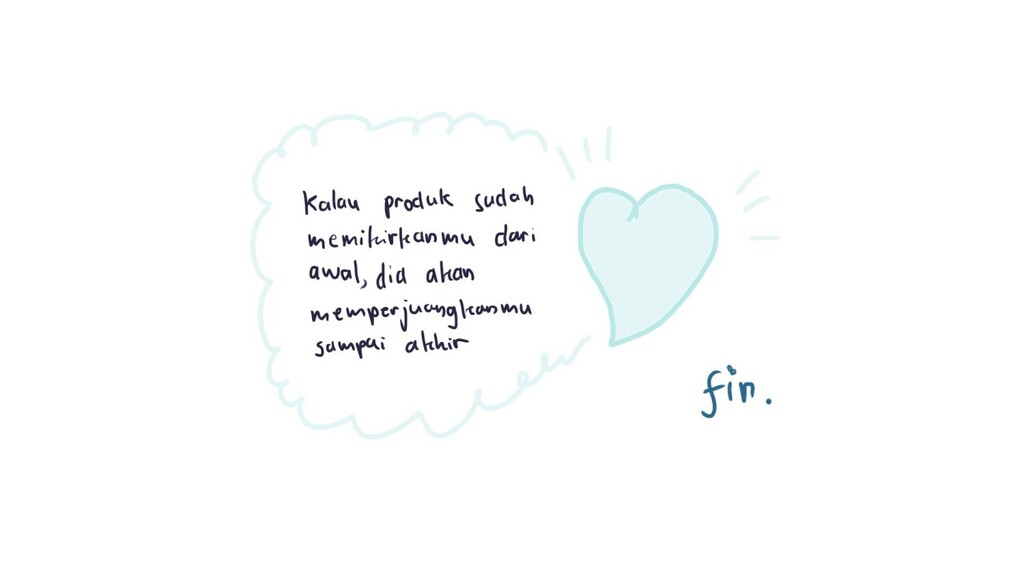 Kalau produk sudah
memikirkanmu dari
awal, dia akan
memperjuangkanmu
sampai akhir
fin.